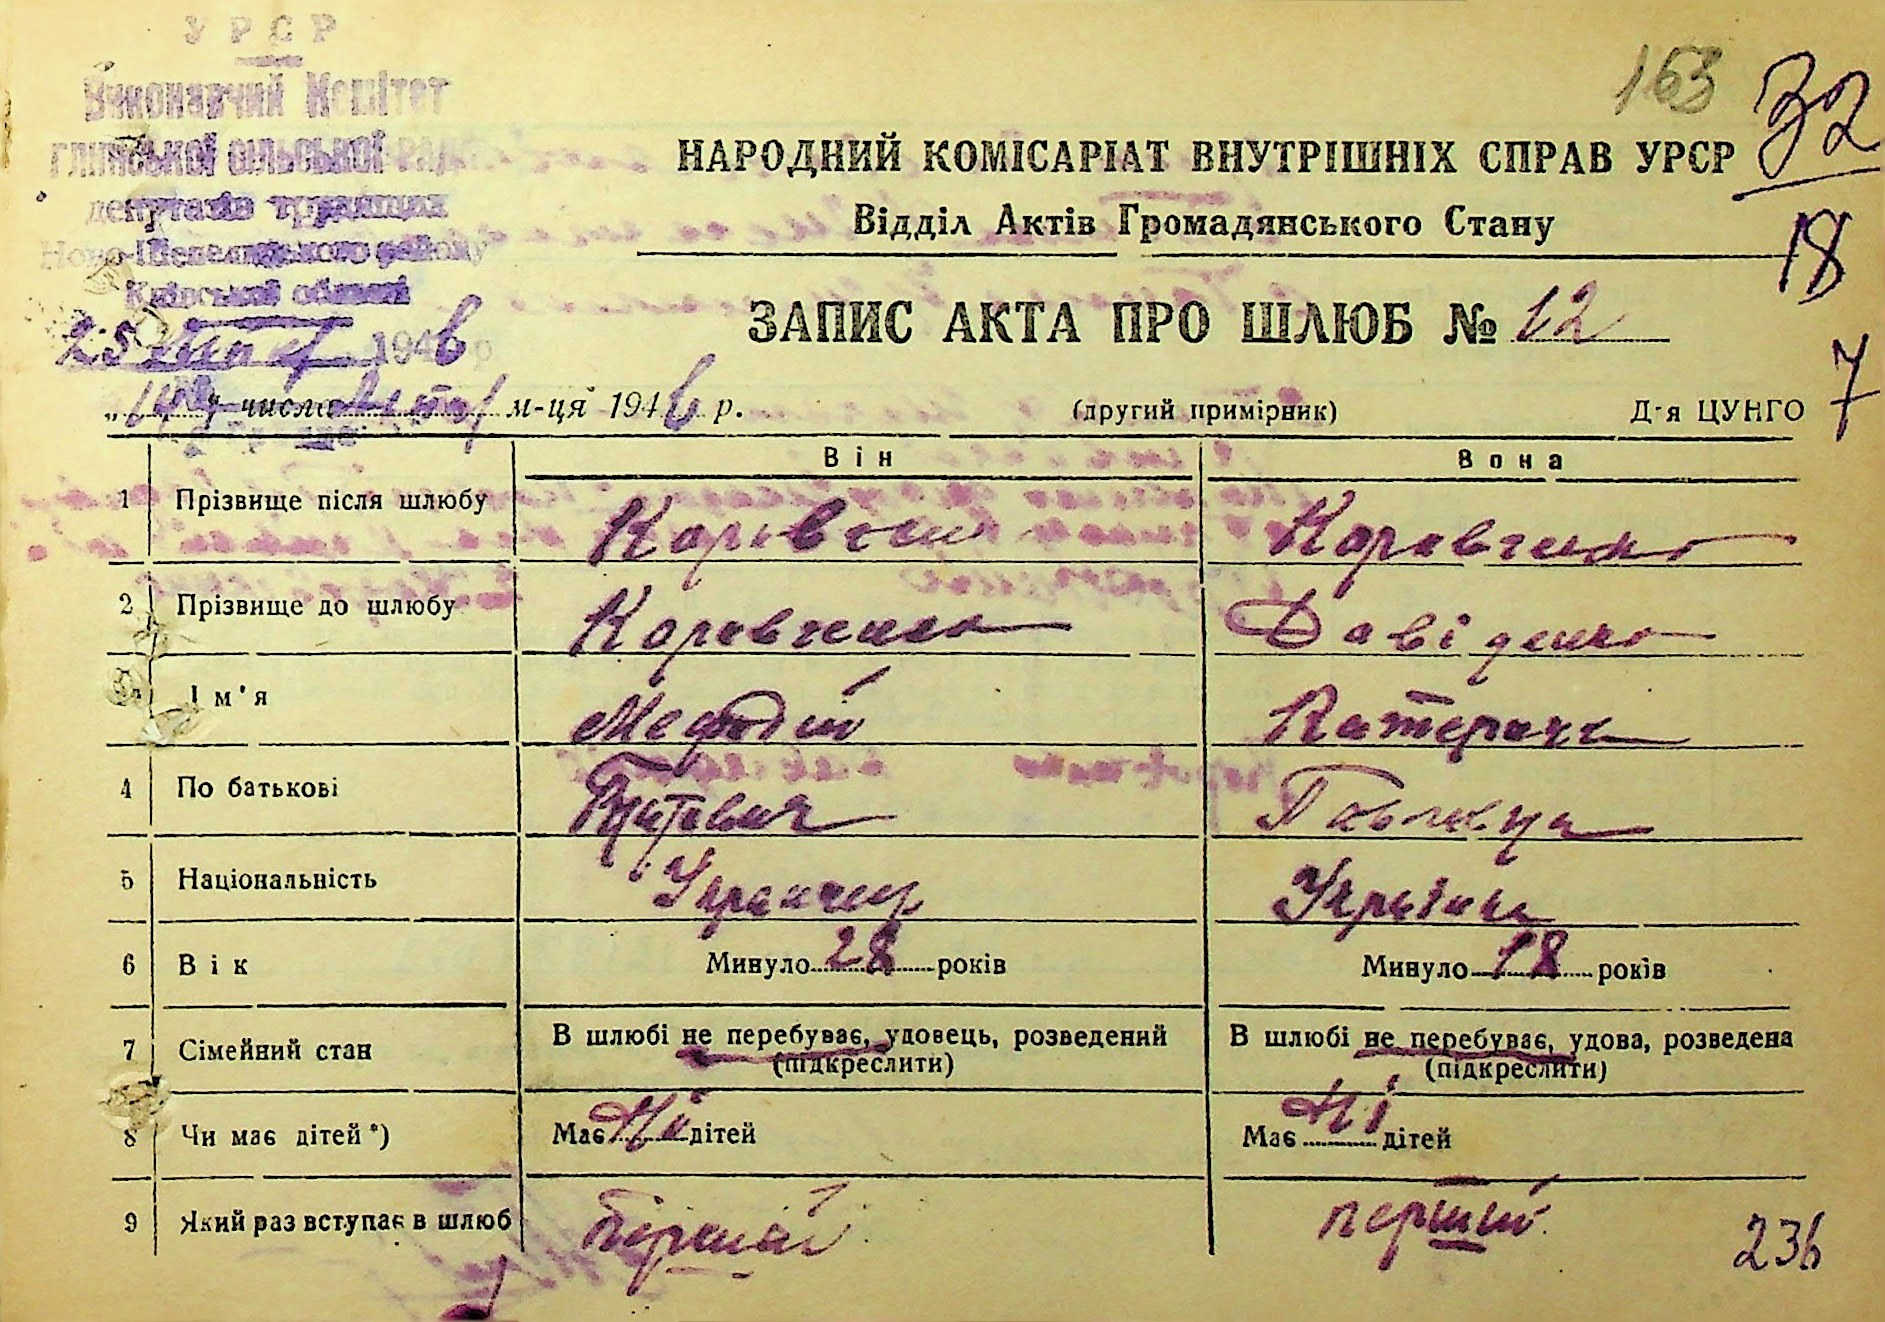 УРСР
Виконавчий Комітет
сільської
депутатів трудящих
Ново-Шепелицького району
Київської області
25 1946 р
163
32
18
7
НАРОДНИЙ КОМІСАРІАТ ВНУТРІШНІХ СПРАВ УРСР
Відділ Актів Громадянського Стану
ЗАПИС АКТА ПРО ШЛЮБ № 12
числа м-ця 1946 р.
(другий примірник)
Д-я ЦУНГО
Він
Вона
1 Прізвище після шлюбу
2 Прізвище до шлюбу Давіденко
3 Ім'я Мефодій Катерина
4 По батькові Павловна
5 Національність Українец Українка
6 Вік Минуло 28 років Минуло 18 років
7 Сімейний стан В шлюбі не перебуває, удовець, розведений В шлюбі не перебуває, удова, розведена
(підкреслити) (підкреслити)
8 Чи має дітей*) Має Ні дітей Має Ні дітей
9 Який раз вступає в шлюб перший перший
236